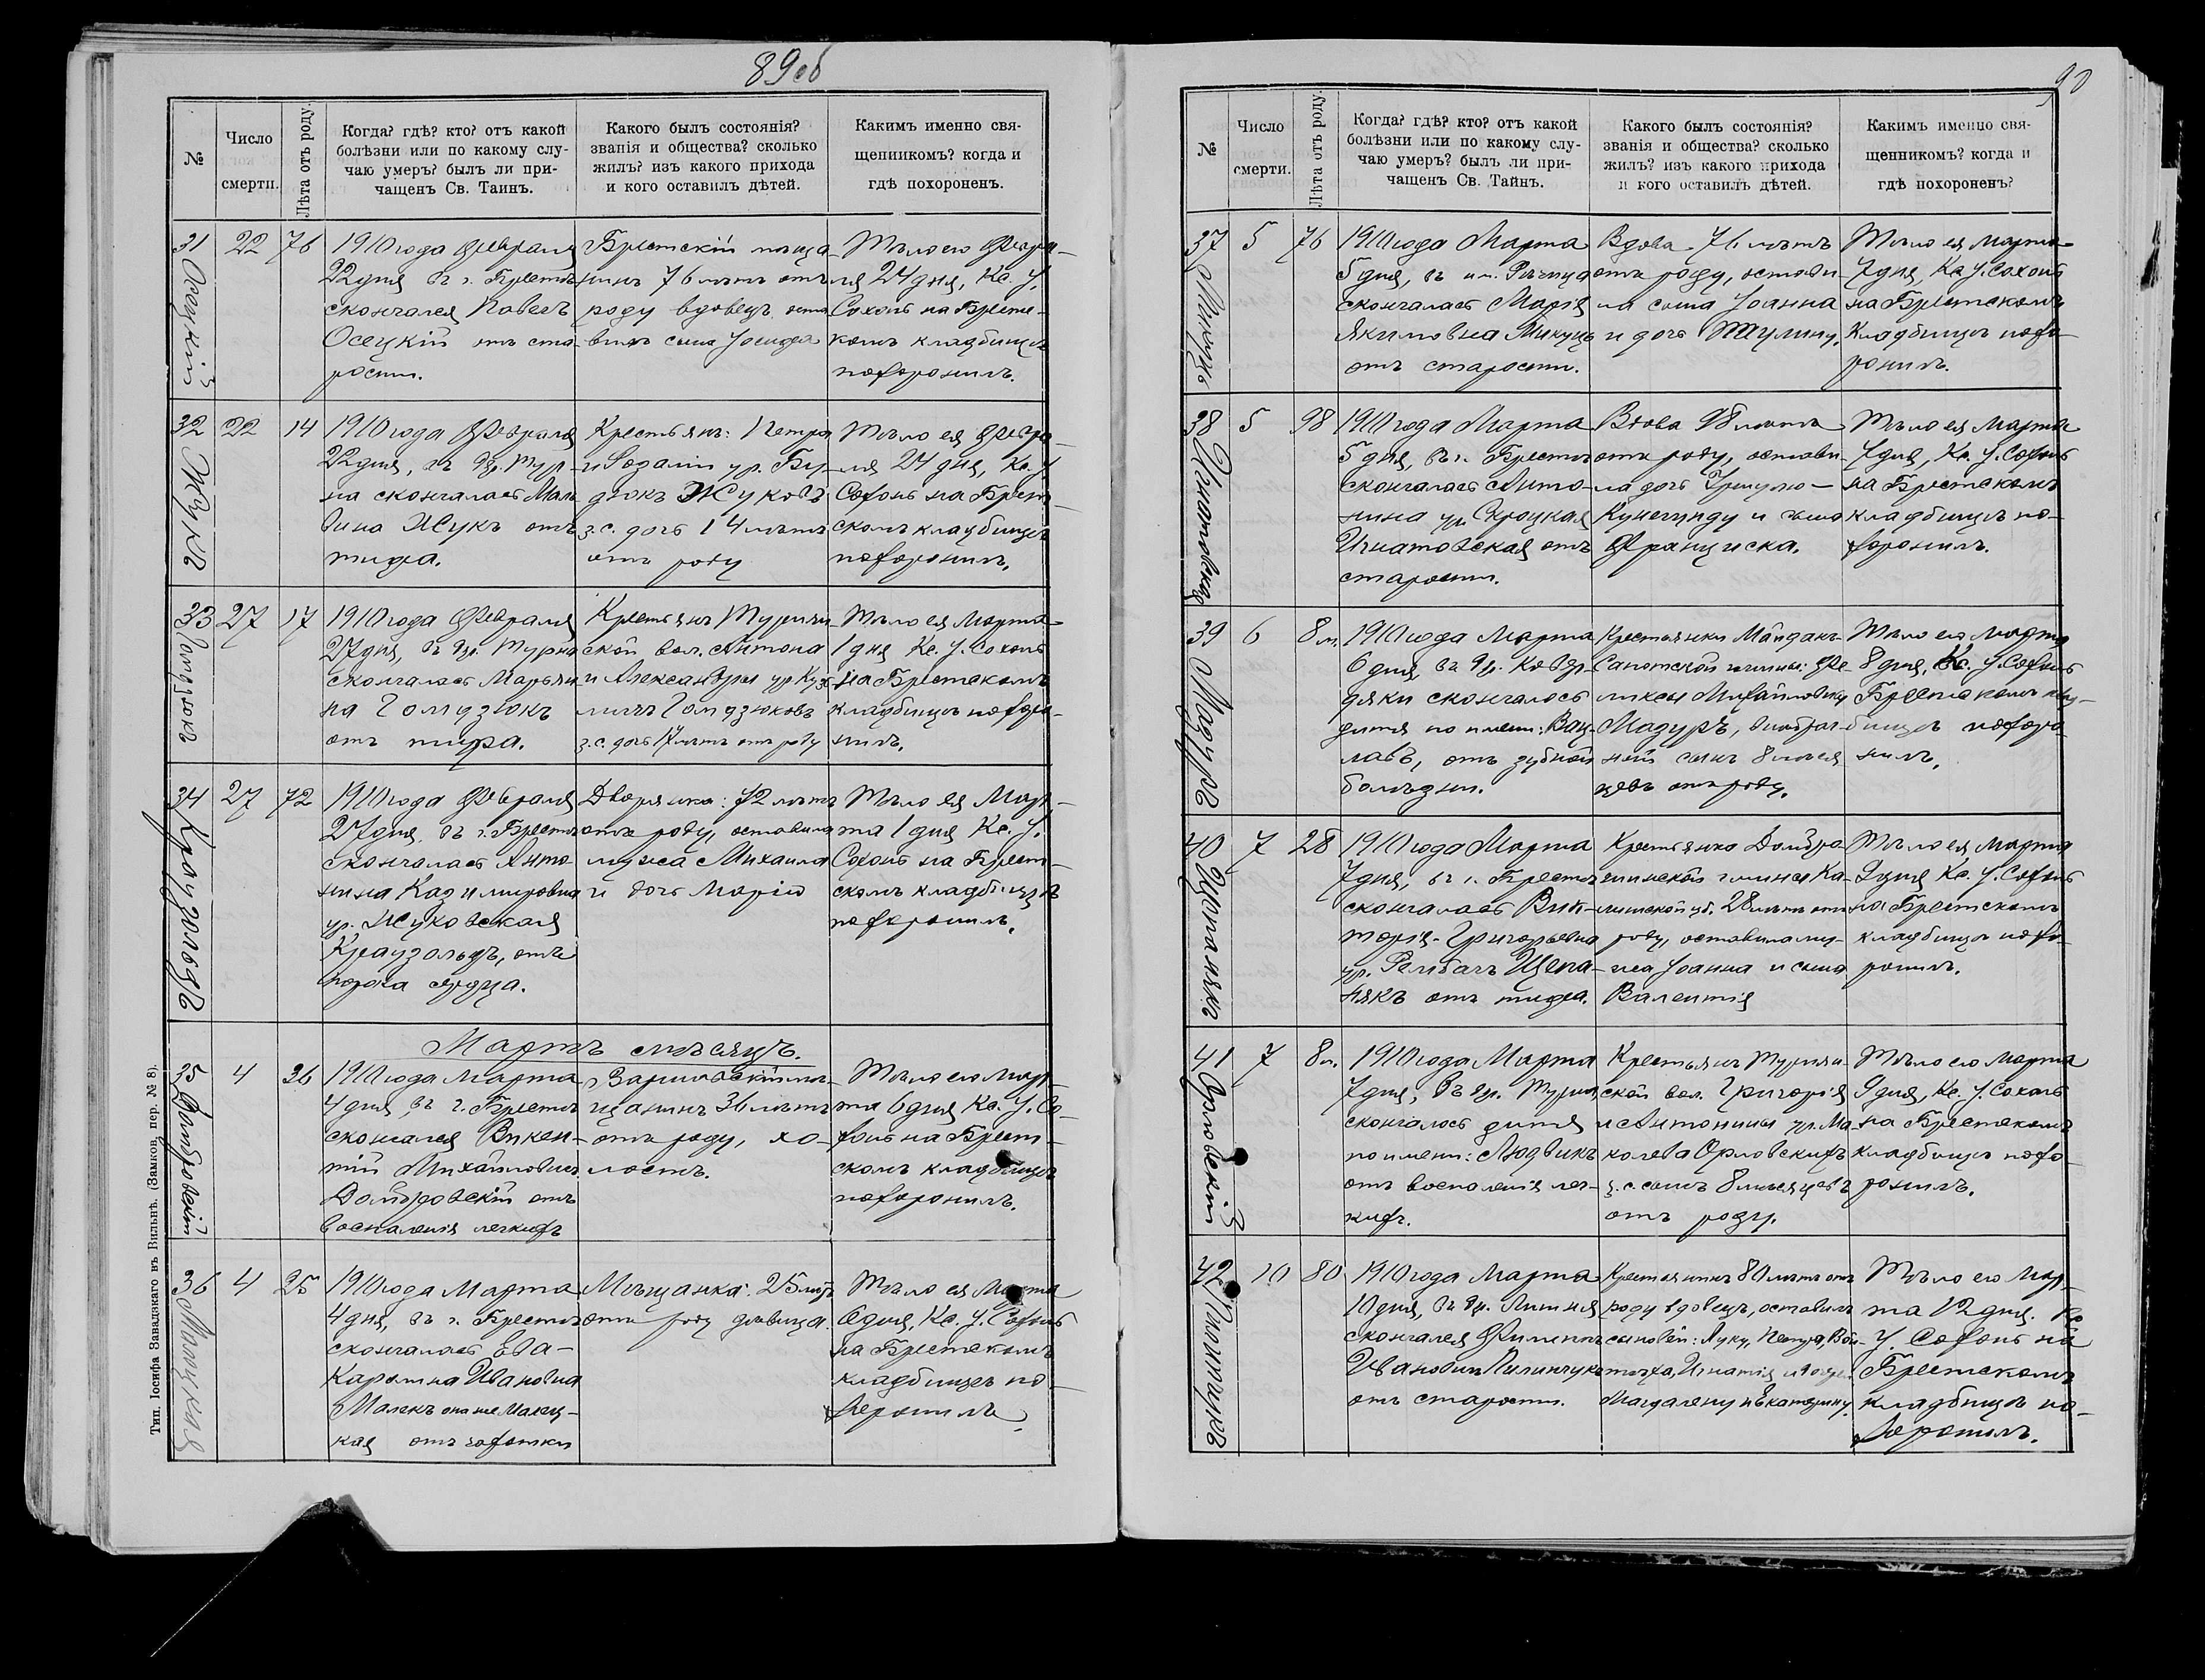 89об
№
Число
смерти.
Лѣта отъ роду.
Когда? гдѣ? кто? отъ какой
болѣзни или по какому слу-
чаю умеръ? былъ ли при-
чащенъ Св. Таинъ.
Какого былъ состоянія?
званія и общества? сколько
жилъ? изъ какого прихода
и кого оставилъ дѣтей.
Какимъ именно свя-
щенникомъ? когда и
гдѣ похороненъ.
31
Осецкій
22
76
1910 года Февраля
22 дня въ г. Брестѣ
скончался Павелъ
Осецкій отъ ста-
рости.
Брестскій мѣща-
нинъ 76 лѣтъ отъ
роду вдовецъ оста
вилъ сына Іосифа
Тѣло его Февра-
ля 24 дня, Кс. У.
Сохонь на Брест-
комъ кладбищѣ
похоронилъ.
32
Жукъ
22
14
1910 года Февраля
22 дня, въ дер. Тур-
на скончалась Маль
вина Жукъ отъ
тифа.
Крестьянъ: Петра
и Розаліи ур. Бу-
дюкъ Жуковъ
з. с. дочь 14 лѣтъ
отъ роду
Тѣло ея Февра-
ля 24 дня, Кс. У
Сохонь на Брест
скомъ кладбищѣ
похоронилъ.
33
Гомдзюкъ
27
17
1910 года Февраля
27 дня, въ дер. Турна
скончалась Марьян
на Гомдзюкъ
отъ тифа.
Крестьянъ Турнян-
ской вол. Антона
и Александры ур.
Гомдзюковъ
з. с. дочь 17 лѣтъ отъ роду
Тѣло ея Марта
1 дня Кс. У. Сохонь
на Брестскомъ
кладбищѣ похоро-
нилъ.
34
Краузольдъ
27
72
1910 года Февраля
27 дня въ г. Брестѣ
скончалась Анто-
нина Казимировна
ур. Жуковская
Краузольдъ, отъ
порока сердца.
Дворянка: 72 лѣтъ
отъ роду, оставила
мужа Михаила
и дочь Марію
Тѣло ея Мар-
та 1 дня Кс. У.
Сохонь на Брест-
скомъ кладбищѣ
похоронилъ.
Мартъ мѣсяцъ.
35
Домбровскій
4
36
1910 года Марта
4 дня, въ г. Брестѣ
скончался Викен-
тій Михайловичъ
Домбровскій отъ
воспаленія легкихъ
Варшавскій мѣ-
щанинъ 36 лѣтъ
отъ роду, хо-
лостъ.
Тѣло его Мар-
та 6 дня Кс. У. Со-
хонь на Брест-
скомъ кладбищѣ
похоронилъ.
36
Малецкая
4
25
1910 года Марта
4 дня, въ г. Брестѣ
скончалась Ева-
Каролина Ивановна
Малекъ она же Малец-
кая отъ чахотки
Мѣщанка: 25 лѣтъ
отъ роду дѣвица.
Тѣло ея Марта
6 дня, Кс. У. Сохонь
на Брестскомъ
кладбищѣ по-
хоронилъ.
Тип. Іосифа Завадзкаго въ Вильнѣ. (Замков. пер. № 8).
90
№
Число
смерти.
Лѣта отъ роду.
Когда? гдѣ? кто? отъ какой
болѣзни или по какому слу-
чаю умеръ? былъ ли при-
чащенъ Св. Тайнъ.
Какого былъ состоянія?
званія и общества? сколько
жилъ? изъ какого прихода
и кого оставилъ дѣтей.
Какимъ именно свя-
щенникомъ? когда и
гдѣ похороненъ?
37
Микуць
5
76
1910 года Марта
5 дня, въ им. Рѣчица
скончалась Марія
Якимовна Микуць
отъ старости.
Вдова 76 лѣтъ
отъ роду, остави-
ла сына Іоанна
и дочь
Тѣло ея Марта
7 дня, Кс. У. Сохонь
на Брестскомъ
кладбищѣ похо-
ронилъ.
38
Игнатовская
5
98
1910 года Марта
5 дня, въ г. Брестѣ
скончалась Анто-
нина ур. Скроцкая
Игнатовская отъ
старости.
Вдова 98 лѣтъ
отъ роду, остави-
ла дочь Урсулю-
Кунегунду и сына
Франциска.
Тѣло ея Марта
7 дня, Кс. У. Сохонь
на Брестскомъ
кладбищѣ по-
хоронилъ.
39
Мазуръ
6
8 м.
1910 года Марта
6 дня, въ др.
скончалось
дитя по имени: Вац-
лавъ, отъ зубной
болѣзни.
Крестьянки Майданъ-
Сапотской гмины: Фе-
ликсы Михайловны
Мазуръ, внебрач-
ный сынъ 8 мѣся
цевъ отъ роду.
Тѣло его Марта
8 дня, Кс. У. Сохонь
Брестскомъ клад-
бищѣ похоро-
нилъ.
40
Щепанякъ
7
28
1910 года Марта
7 дня, въ г. Брестѣ
скончалась Вик-
торія Григорьевна
ур. Рембачъ Щепа-
някъ отъ тифа.
Крестьянка Домбро-
шинской гмины Ка-
лишской губ. 28 лѣтъ отъ
роду, оставила му-
жа Іоанна и сына
Валентія
Тѣло ея Марта
9 дня Кс. У. Сохонь
на Брестскомъ
кладбищѣ похо-
ронилъ.
41
Орловскій
7
8 м.
1910 года Марта
7 дня, въ др. Турна
скончалось дитя
по имени: Людвикъ
отъ воспаленія лег-
кихъ.
Крестьянъ Турнян-
ской вол. Григорія
и Антонины ур. Ма-
колева Орловскихъ
з. с. сынъ 8 мѣсяцевъ
отъ роду.
Тѣло его Марта
9 дня, Кс. У. Сохонь
на Брестскомъ
кладбищѣ похо-
ронилъ.
42
Пилипчукъ
10
80
1910 года Марта
10 дня, въ др. Литня
скончался Филиппъ
Ивановичъ Пилипчукъ
отъ старости.
Крестьянинъ 80 лѣтъ отъ
роду вдовецъ, оставилъ
сыновей: Луку, Петра, Вой-
тѣха, Игнатія и дочери
Магдалену и Екатерину.
Тѣло его Мар-
та 12 дня. Кс.
У. Сохонь на
Брестскомъ
кладбищѣ по-
хоронилъ.